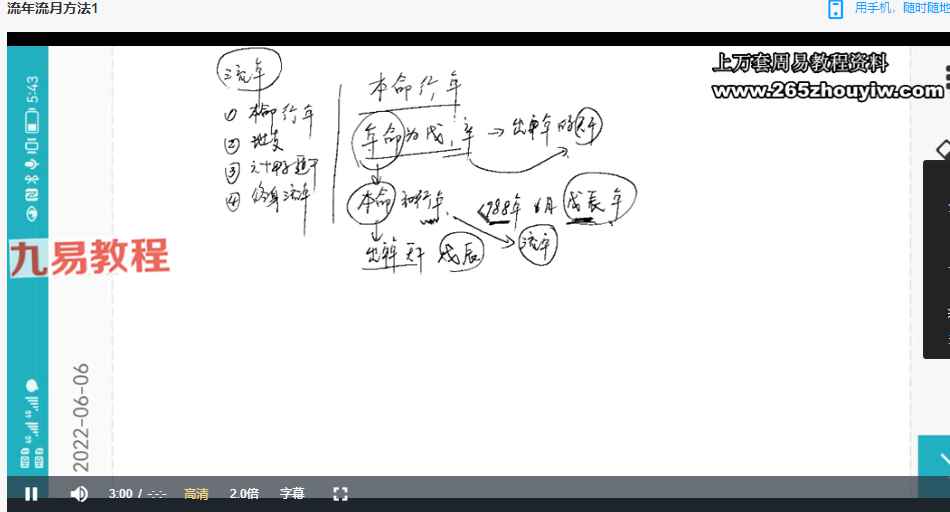 流年流月方法1
用手机，随时随地
上万套周易教程资料
www.265zhouyiw.com
5:43
流年
① 本命行年
② 地支
③ 六十甲子遁干
④ 终身流年
本命行年
年命为戊，年 → 出生年的天干
本命和行年
1988年6月 戊辰年
出生年天干 戊辰
流年
九易教程
2022-06-06
3:00 / -:-:-
高清
2.0倍
字幕